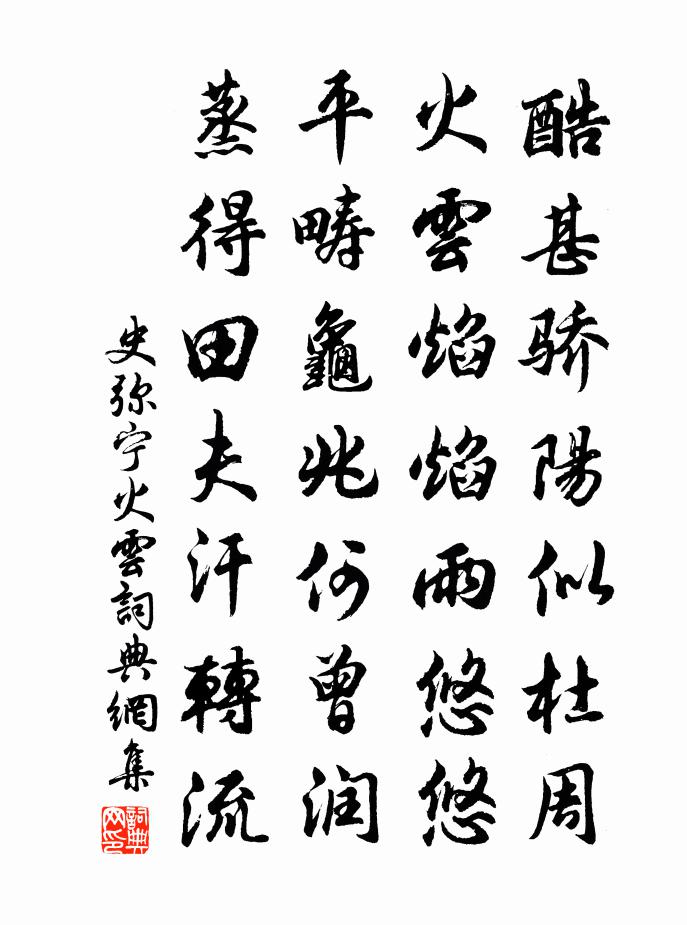 酷甚骄陽似杜周
火雲焰焰雨悠悠
平疇龜兆何曾润
蒸得田夫汗轉流
史弥宁火雲詞典網集
詞典网印